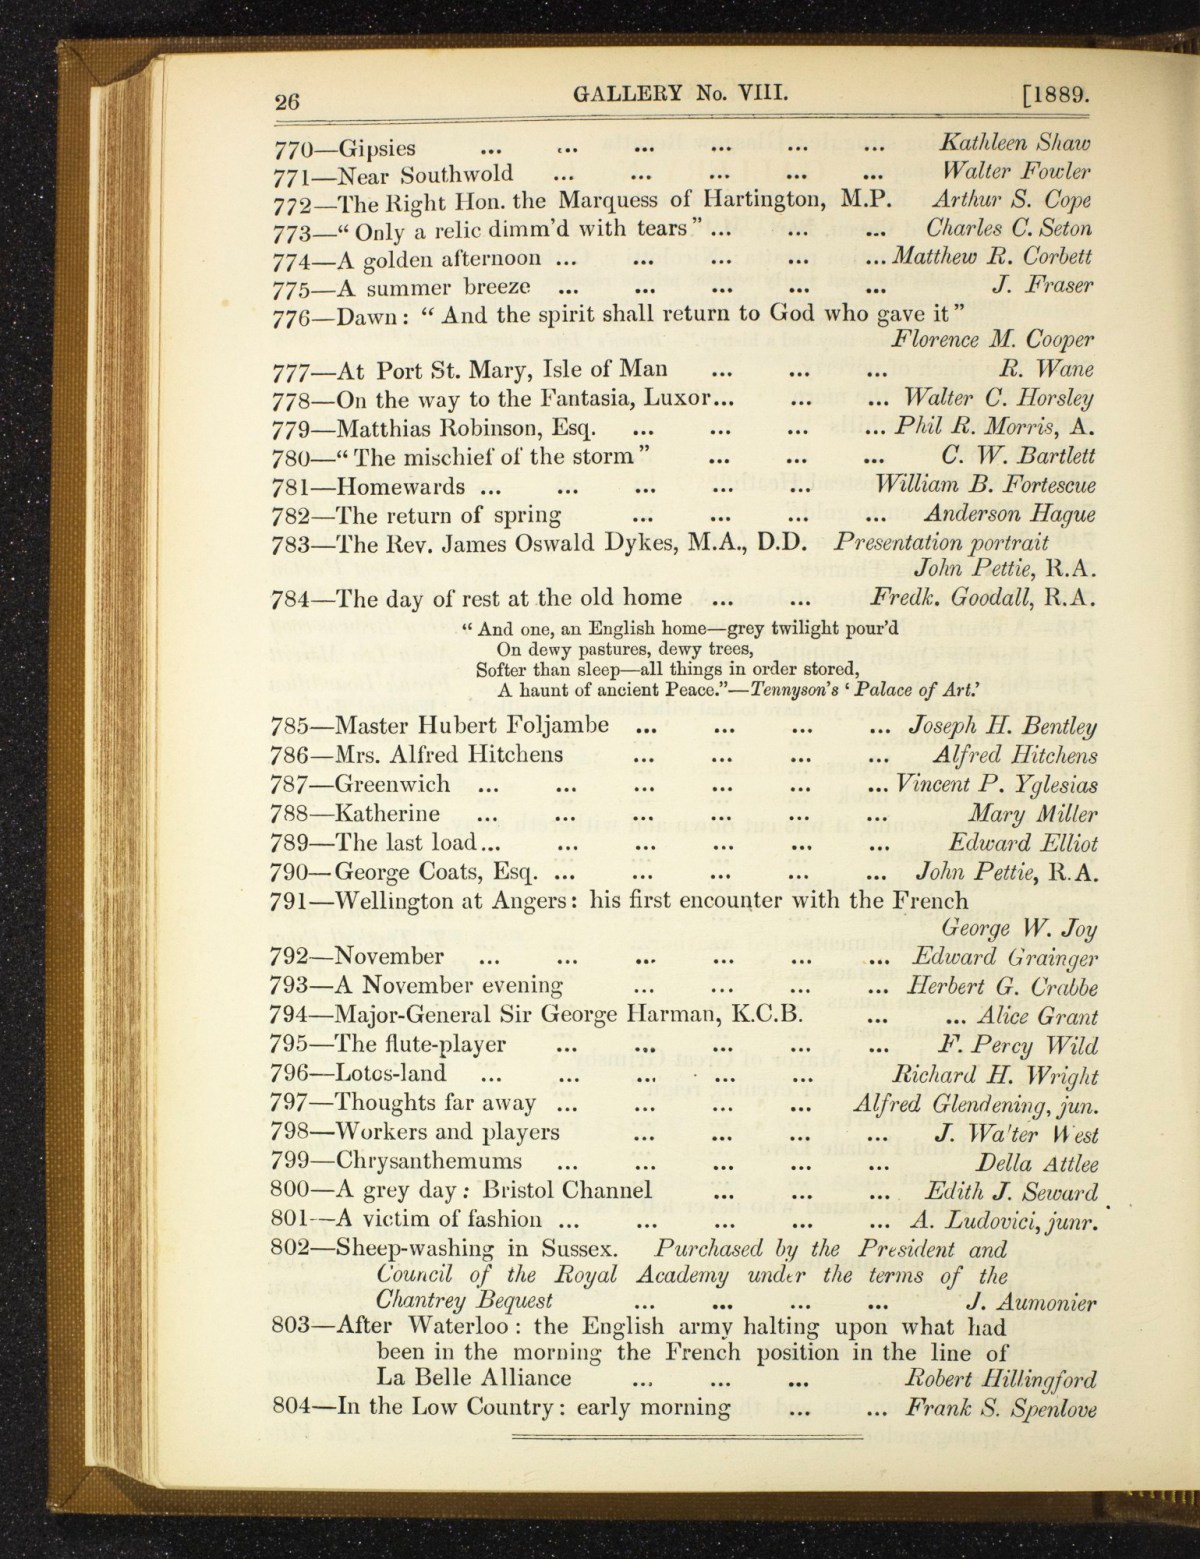 26 GALLERY No. VIII. [1889.
770—Gipsies ... ... ... ... ... ... Kathleen Shaw
771—Near Southwold ... ... ... ... ... Walter Fowler
772—The Right Hon. the Marquess of Hartington, M.P. Arthur S. Cope
773—“ Only a relic dimm’d with tears ” ... ... ... Charles C. Seton
774—A golden afternoon ... ... ... ... ... Matthew R. Corbett
775—A summer breeze ... ... ... ... ... J. Fraser
776—Dawn: “ And the spirit shall return to God who gave it ”
Florence M. Cooper
777—At Port St. Mary, Isle of Man ... ... ... R. Wane
778—On the way to the Fantasia, Luxor... ... ... Walter C. Horsley
779—Matthias Robinson, Esq. ... ... ... ... Phil R. Morris, A.
780—“ The mischief of the storm ” ... ... ... C. W. Bartlett
781—Homewards ... ... ... ... ... William B. Fortescue
782—The return of spring ... ... ... ... Anderson Hague
783—The Rev. James Oswald Dykes, M.A., D.D. Presentation portrait
John Pettie, R.A.
784—The day of rest at the old home ... ... Fredk. Goodall, R.A.
“ And one, an English home—grey twilight pour’d
On dewy pastures, dewy trees,
Softer than sleep—all things in order stored,
A haunt of ancient Peace.”—Tennyson’s ‘ Palace of Art.’
785—Master Hubert Foljambe ... ... ... ... Joseph H. Bentley
786—Mrs. Alfred Hitchens ... ... ... ... Alfred Hitchens
787—Greenwich ... ... ... ... ... ... Vincent P. Yglesias
788—Katherine ... ... ... ... ... ... Mary Miller
789—The last load... ... ... ... ... ... Edward Elliot
790—George Coats, Esq. ... ... ... ... ... John Pettie, R.A.
791—Wellington at Angers: his first encounter with the French
George W. Joy
792—November ... ... ... ... ... ... Edward Grainger
793—A November evening ... ... ... ... Herbert G. Crabbe
794—Major-General Sir George Harman, K.C.B. ... ... Alice Grant
795—The flute-player ... ... ... ... ... F. Percy Wild
796—Lotos-land ... ... ... ... ... Richard H. Wright
797—Thoughts far away ... ... ... ... Alfred Glendening, jun.
798—Workers and players ... ... ... ... J. Walter West
799—Chrysanthemums ... ... ... ... ... Della Attlee
800—A grey day: Bristol Channel ... ... ... Edith J. Seward
801—A victim of fashion ... ... ... ... ... A. Ludovici, junr.
802—Sheep-washing in Sussex. Purchased by the President and
Council of the Royal Academy under the terms of the
Chantrey Bequest ... ... ... ... J. Aumonier
803—After Waterloo: the English army halting upon what had
been in the morning the French position in the line of
La Belle Alliance ... ... ... Robert Hillingford
804—In the Low Country: early morning ... ... Frank S. Spenlove